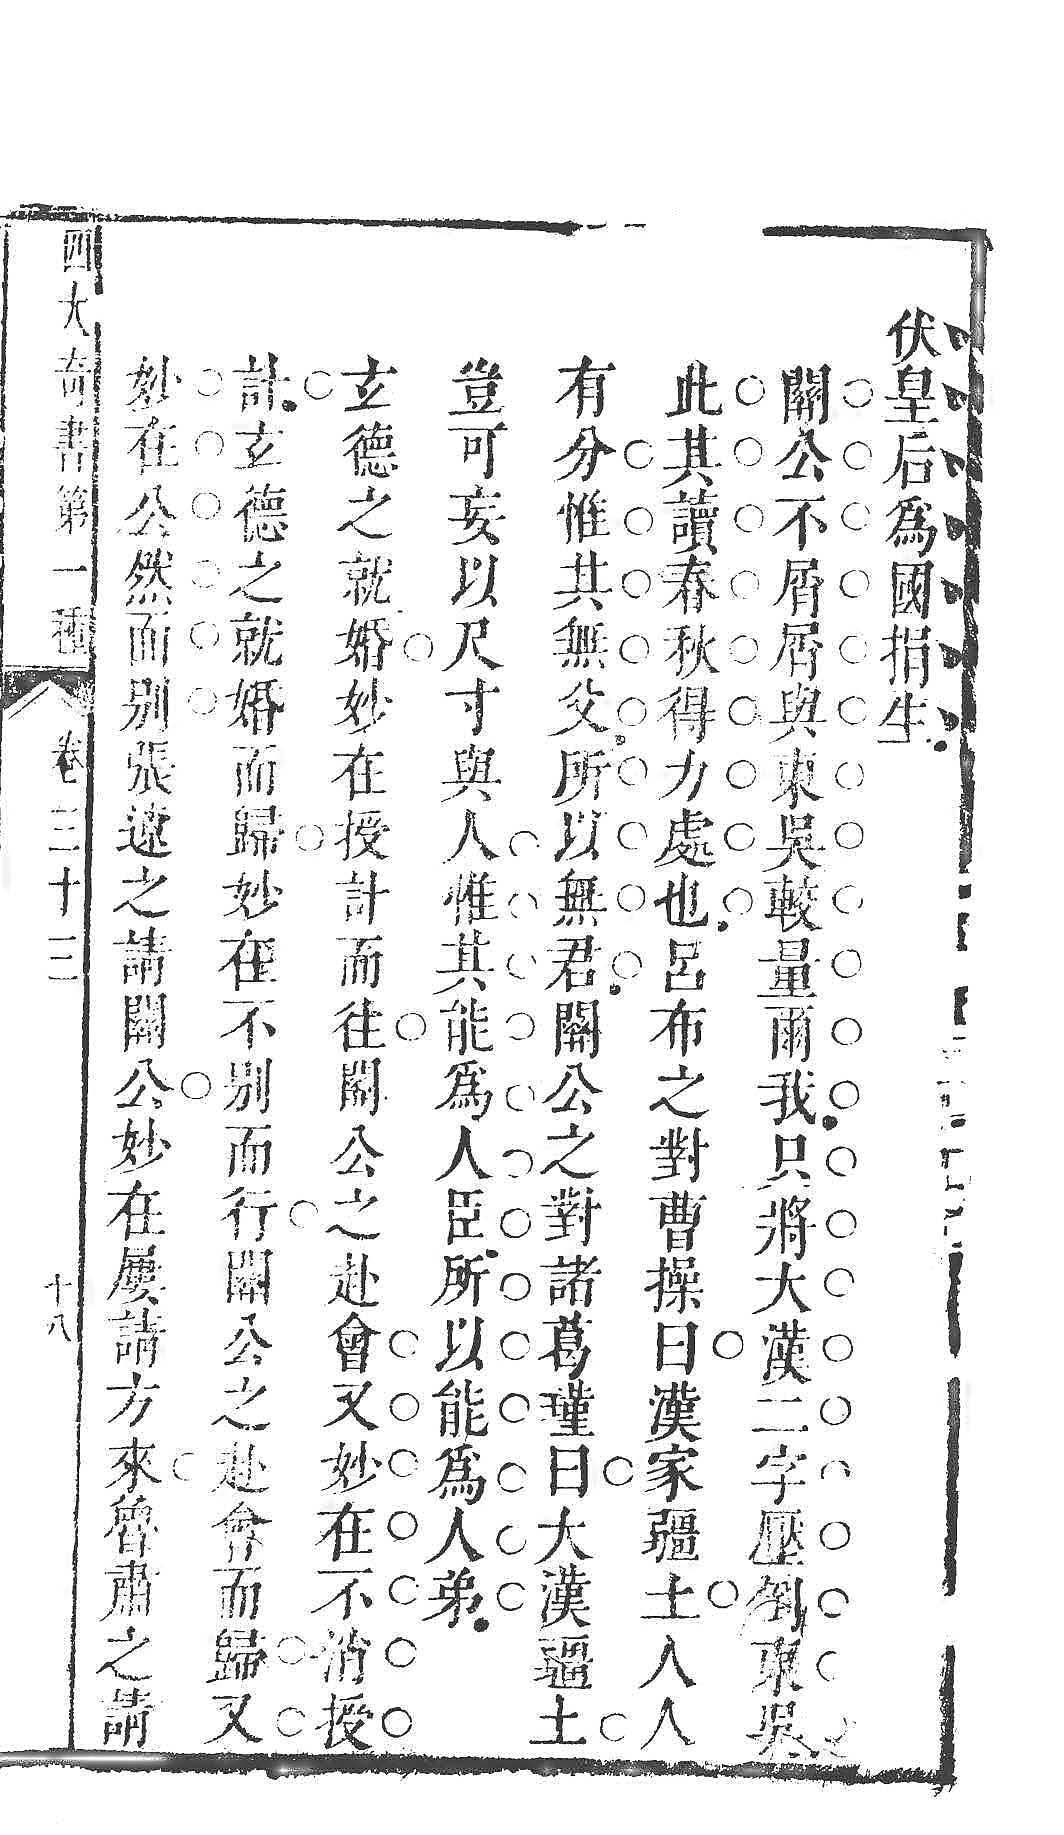 伏皇后爲國捐生
關公不屑屑與東吳較量爾我只將大漢二字壓倒東吳
此其讀春秋得力處也呂布之對曹操曰漢家疆土人人
有分惟其無父所以無君關公之對諸葛瑾曰大漢疆土
豈可妄以尺寸與人惟其能爲人臣所以能爲人弟
玄德之就婚妙在授計而往關公之赴會又妙在不消授
計玄德之就婚而歸妙在不別而行關公之赴會而歸又
妙在公然而別張遼之請關公妙在屢請方來魯肅之請
四大奇書第一種
卷三十三
十八